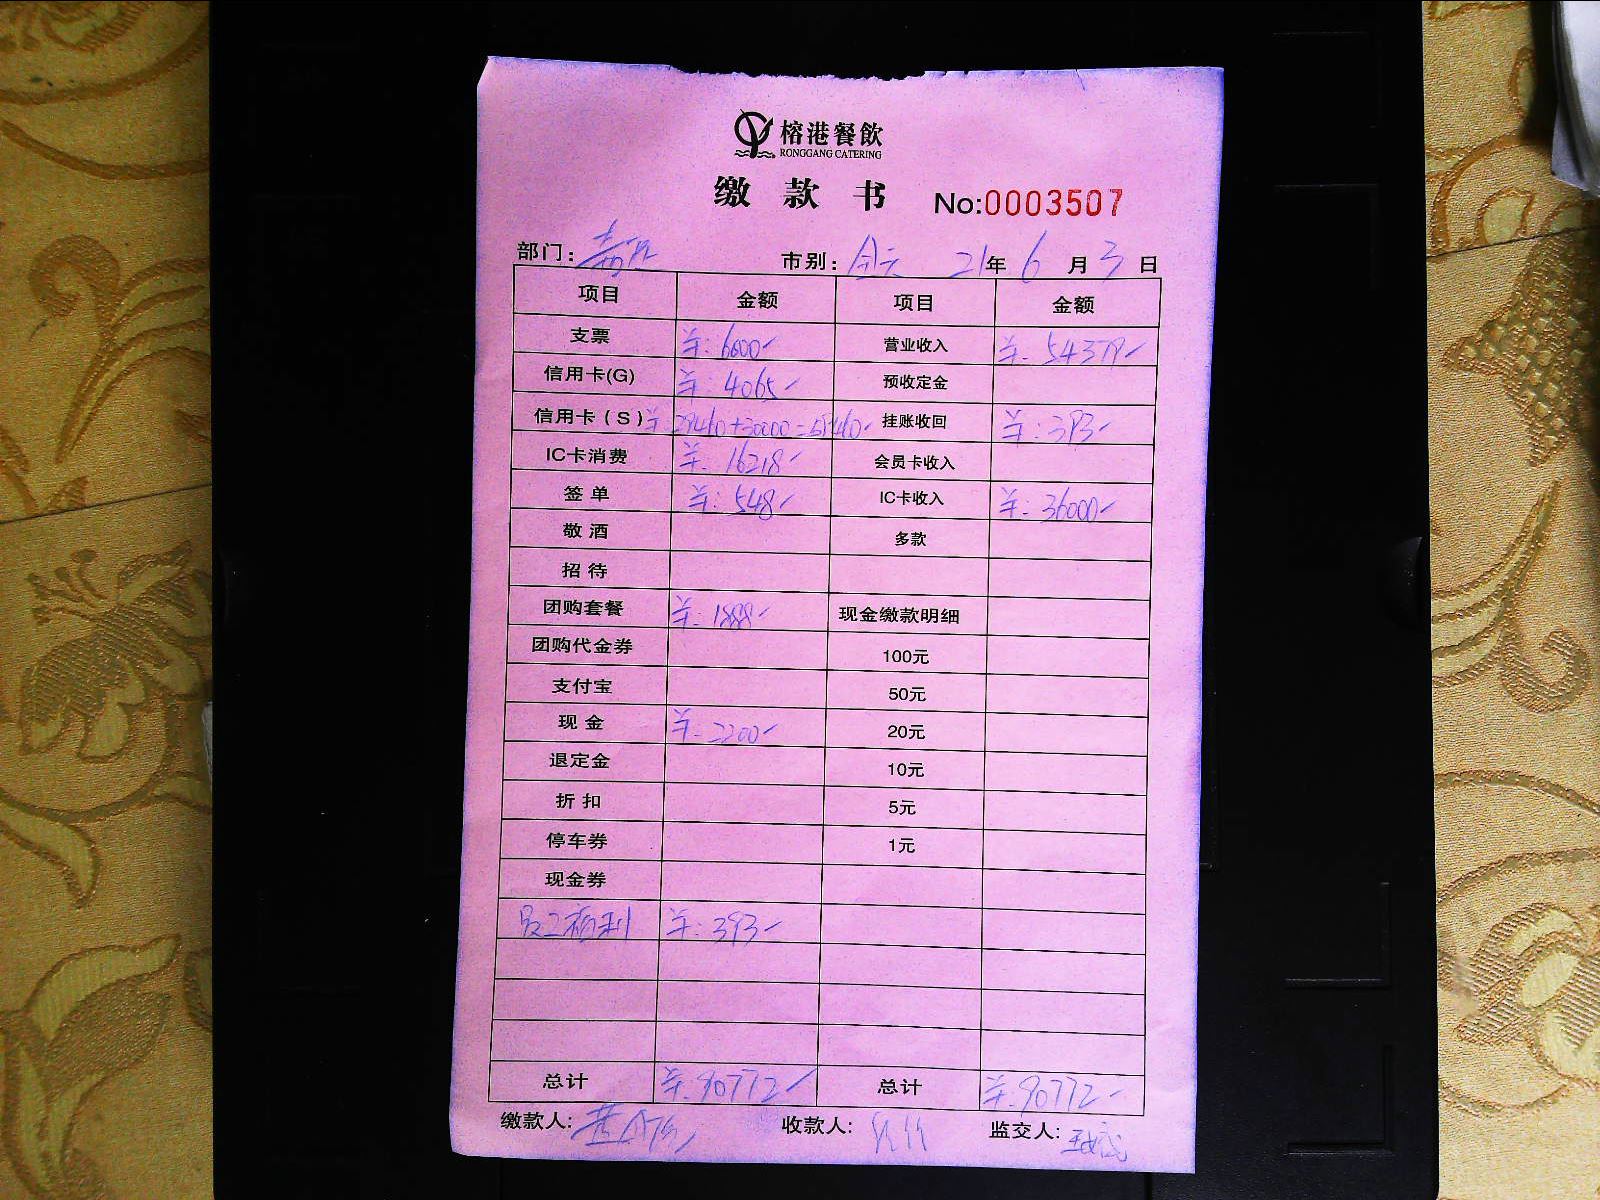 榕港餐飲
RONGGANG CATERING
缴款书 No:0003507
部门: 市别: 全天 21年 6月 3日
项目 金额 项目 金额
支票 ¥:6000- 营业收入 ¥:54379-
信用卡(G) ¥:4065- 预收定金
信用卡(S) ¥:29460+30000=59460- 挂账收回 ¥:393-
IC卡消费 ¥:16218- 会员卡收入
签单 ¥:548- IC卡收入 ¥:36000-
敬酒 多款
招待
团购套餐 ¥:1888- 现金缴款明细
团购代金券 100元
支付宝 50元
现金 ¥:2200- 20元
退定金 10元
折扣 5元
停车券 1元
现金券
员工福利 ¥:393-
总计 ¥:90772- 总计 ¥:90772-
缴款人: 收款人: 监交人: